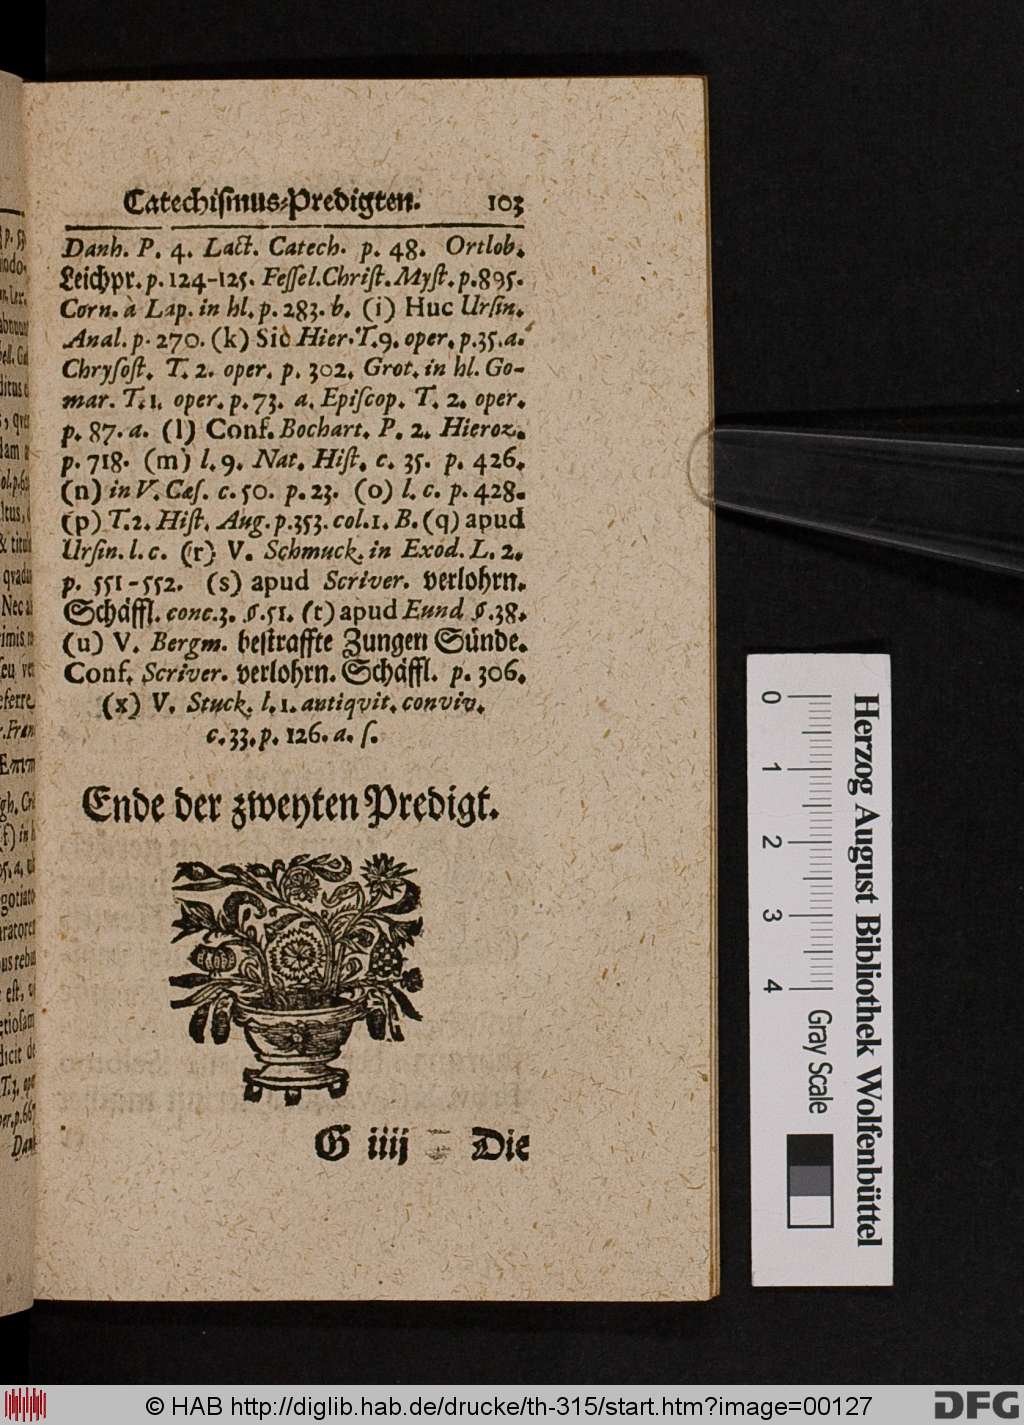 Catechismus-Predigten. 103
Danh. P. 4. Lact. Catech. p. 48. Ortlob.
Leichpr. p. 124-125. Fessel. Christ. Myst. p. 895.
Corn. à Lap. in hl. p. 283. b. (i) Huc Ursin.
Anal. p. 270. (k) Sic Hier. T. 9. oper. p. 35. a.
Chrysost. T. 2. oper. p. 302. Grot. in hl. Go-
mar. T. 1. oper. p. 73. a. Episcop. T. 2. oper.
p. 87. a. (l) Conf. Bochart. P. 2. Hieroz.
p. 718. (m) l. 9. Nat. Hist. c. 35. p. 426.
(n) in V. Cæs. c. 50. p. 23. (o) l. c. p. 428.
(p) T. 2. Hist. Aug. p. 353. col. 1. B. (q) apud
Ursin. l. c. (r) V. Schmuck. in Exod. L. 2.
p. 551-552. (s) apud Scriver. verlohrn.
Schäffl. conc. 3. §. 51. (t) apud Eund §. 38.
(u) V. Bergm. bestraffte Zungen Sünde.
Conf. Scriver. verlohrn. Schäffl. p. 306.
(x) V. Stuck. l. 1. antiqvit. conviv.
c. 33. p. 126. a. s.
Ende der zweyten Predigt.
G iiij Die
Herzog August Bibliothek Wolfenbüttel
0 1 2 3 4
Gray Scale
© HAB http://diglib.hab.de/drucke/th-315/start.htm?image=00127
DFG